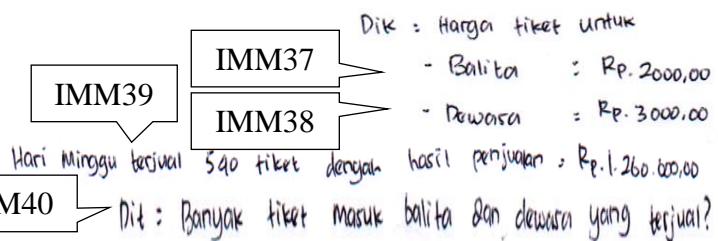 Dik : Harga tiket untuk
IMM37
- Balita : Rp. 2000,00
IMM39
IMM38
- Dewasa : Rp. 3000,00
Hari Minggu terjual 540 tiket dengan hasil penjualan : Rp. 1.260.000,00
M40
Dit : Banyak tiket masuk balita dan dewasa yang terjual?